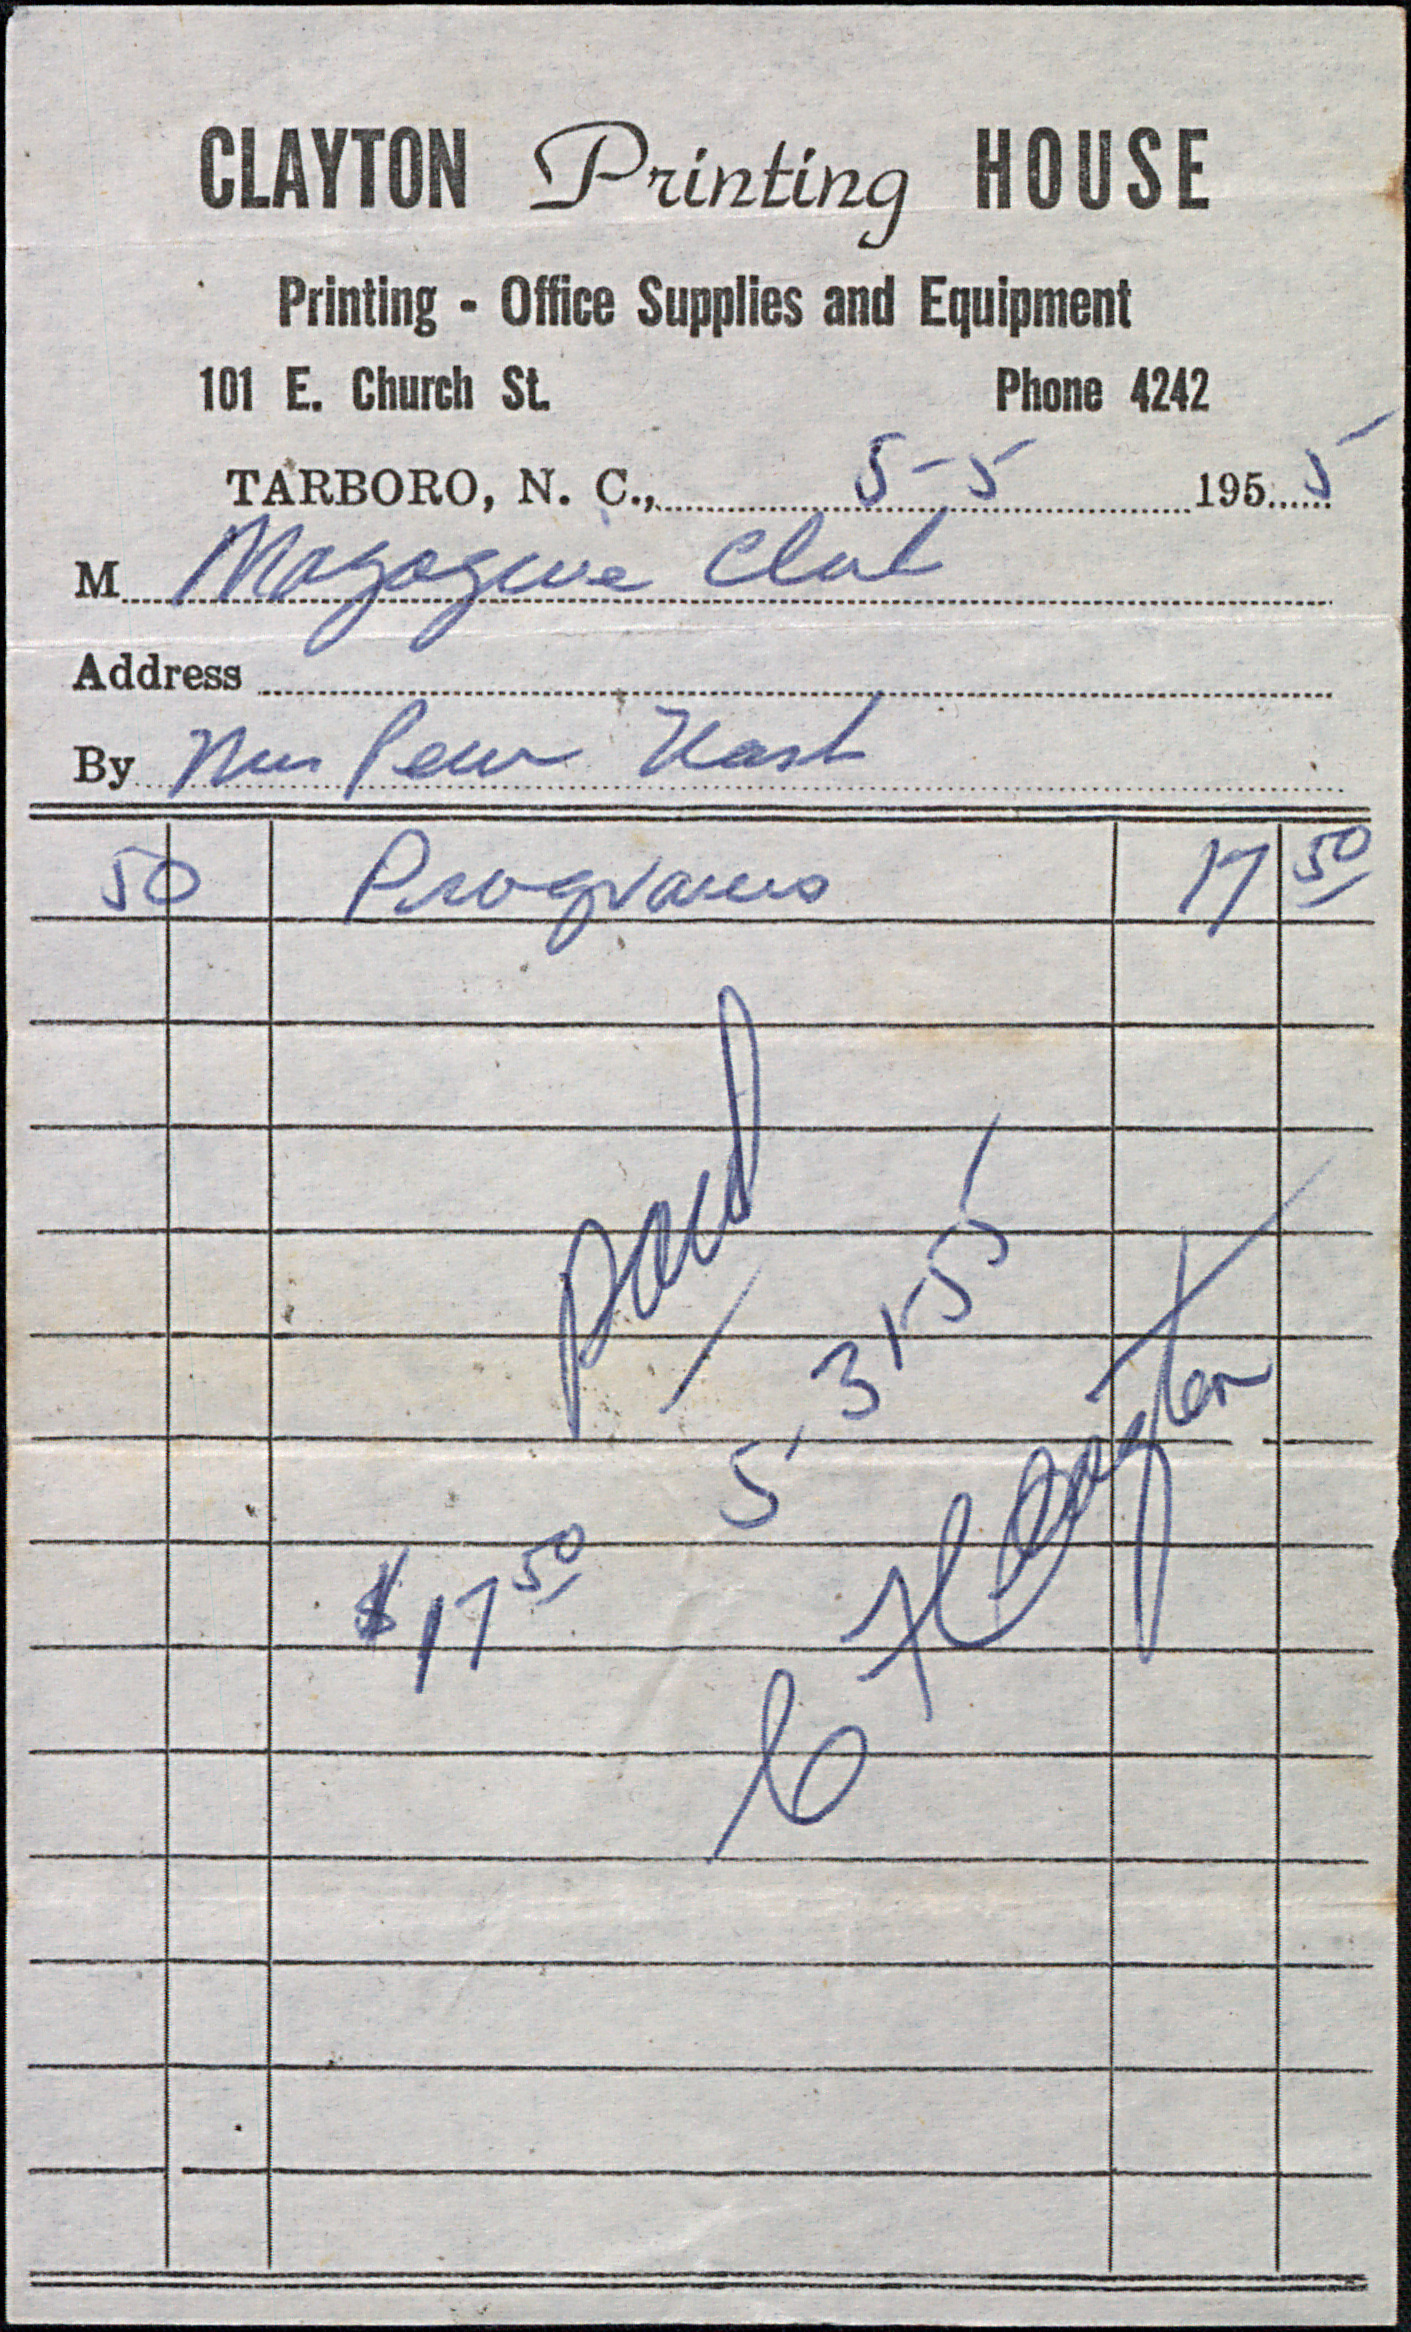 CLAYTON Printing HOUSE
Printing - Office Supplies and Equipment
101 E. Church St. Phone 4242
TARBORO, N. C., 5-5 1955
M Magazine Club
Address
By Mrs Hart
50 Programs 17 50
Paid
5, 31-55
$17 50
Clayton